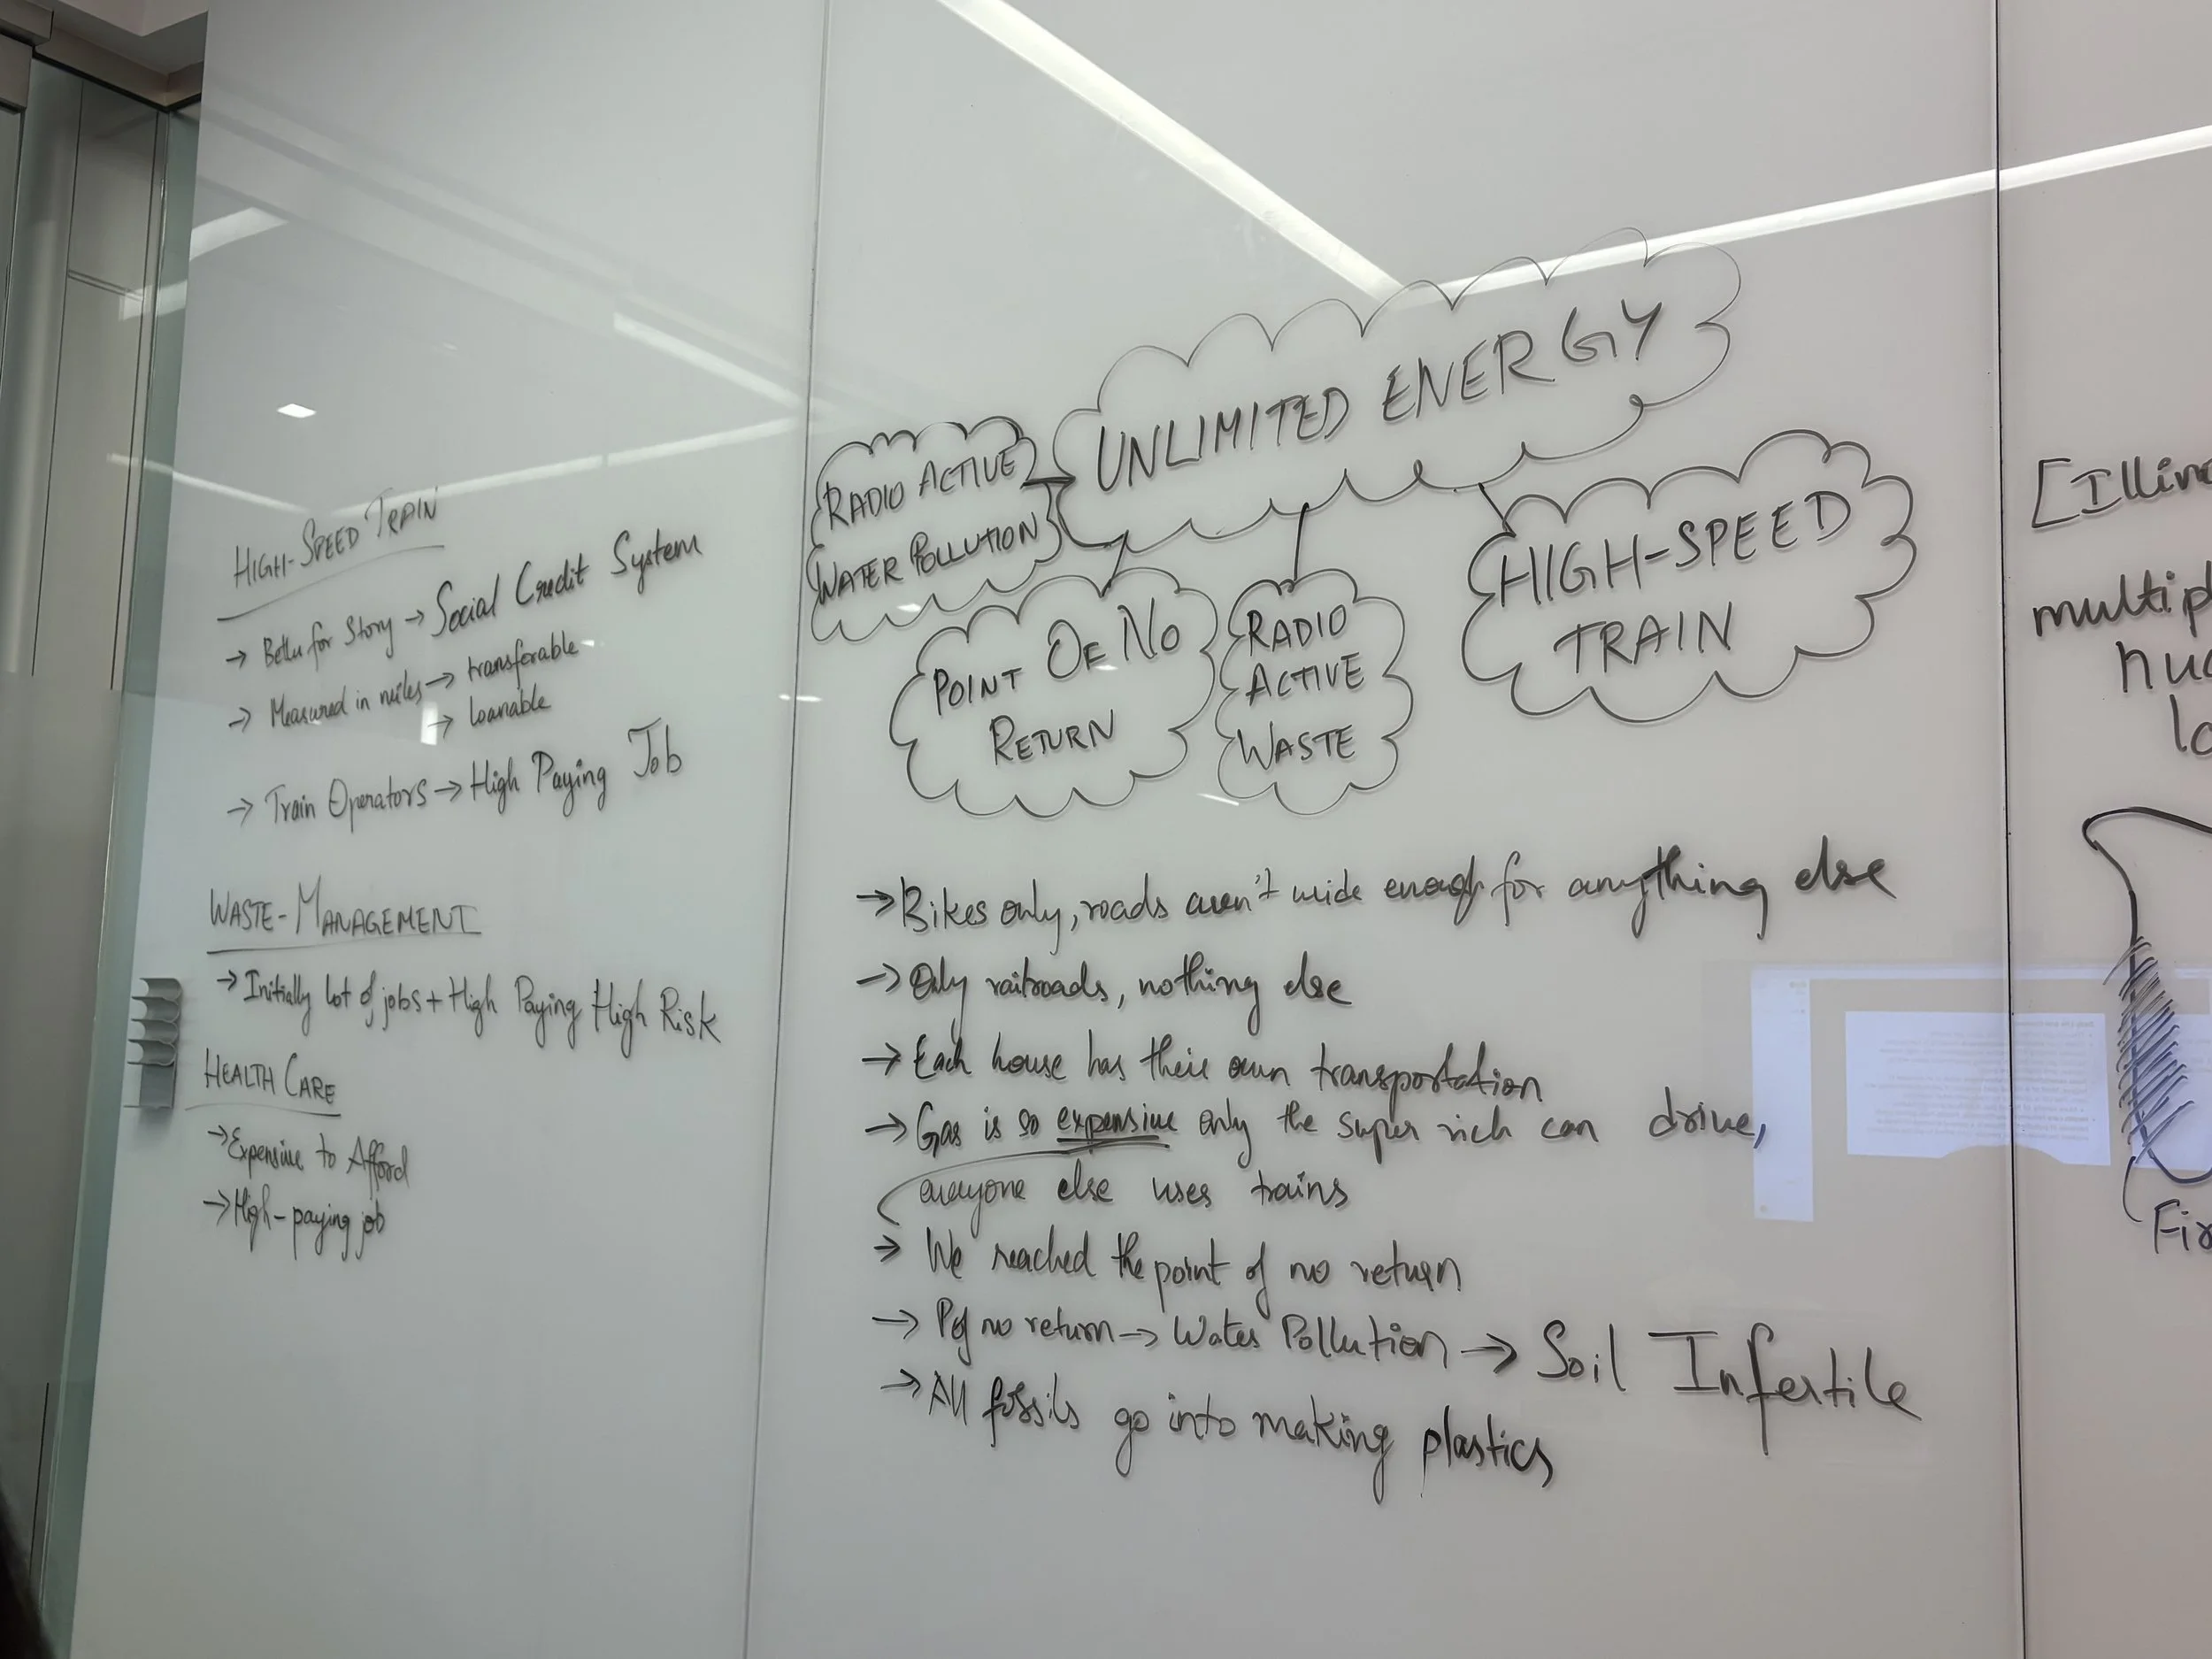 HIGH-SPEED TRAIN
→ Better for Story → Social Credit System
→ Measured in miles → transferable
→ loanable
→ Train Operators → High Paying Job
WASTE-MANAGEMENT
→ Initially lot of jobs + High Paying High Risk
HEALTH CARE
→ Expensive to Afford
→ High-paying job
UNLIMITED ENERGY
RADIO ACTIVE
WATER POLLUTION
POINT OF NO
RETURN
RADIO
ACTIVE
WASTE
HIGH-SPEED
TRAIN
→ Bikes only, roads aren't wide enough for anything else
→ Only railroads, nothing else
→ Each house has their own transportation
→ Gas is so expensive only the super rich can drive,
everyone else uses trains
→ We reached the point of no return
→ P of no return → Water Pollution → Soil Infertile
→ All fossils go into making plastics
[Illin
multip
nuc
Fir